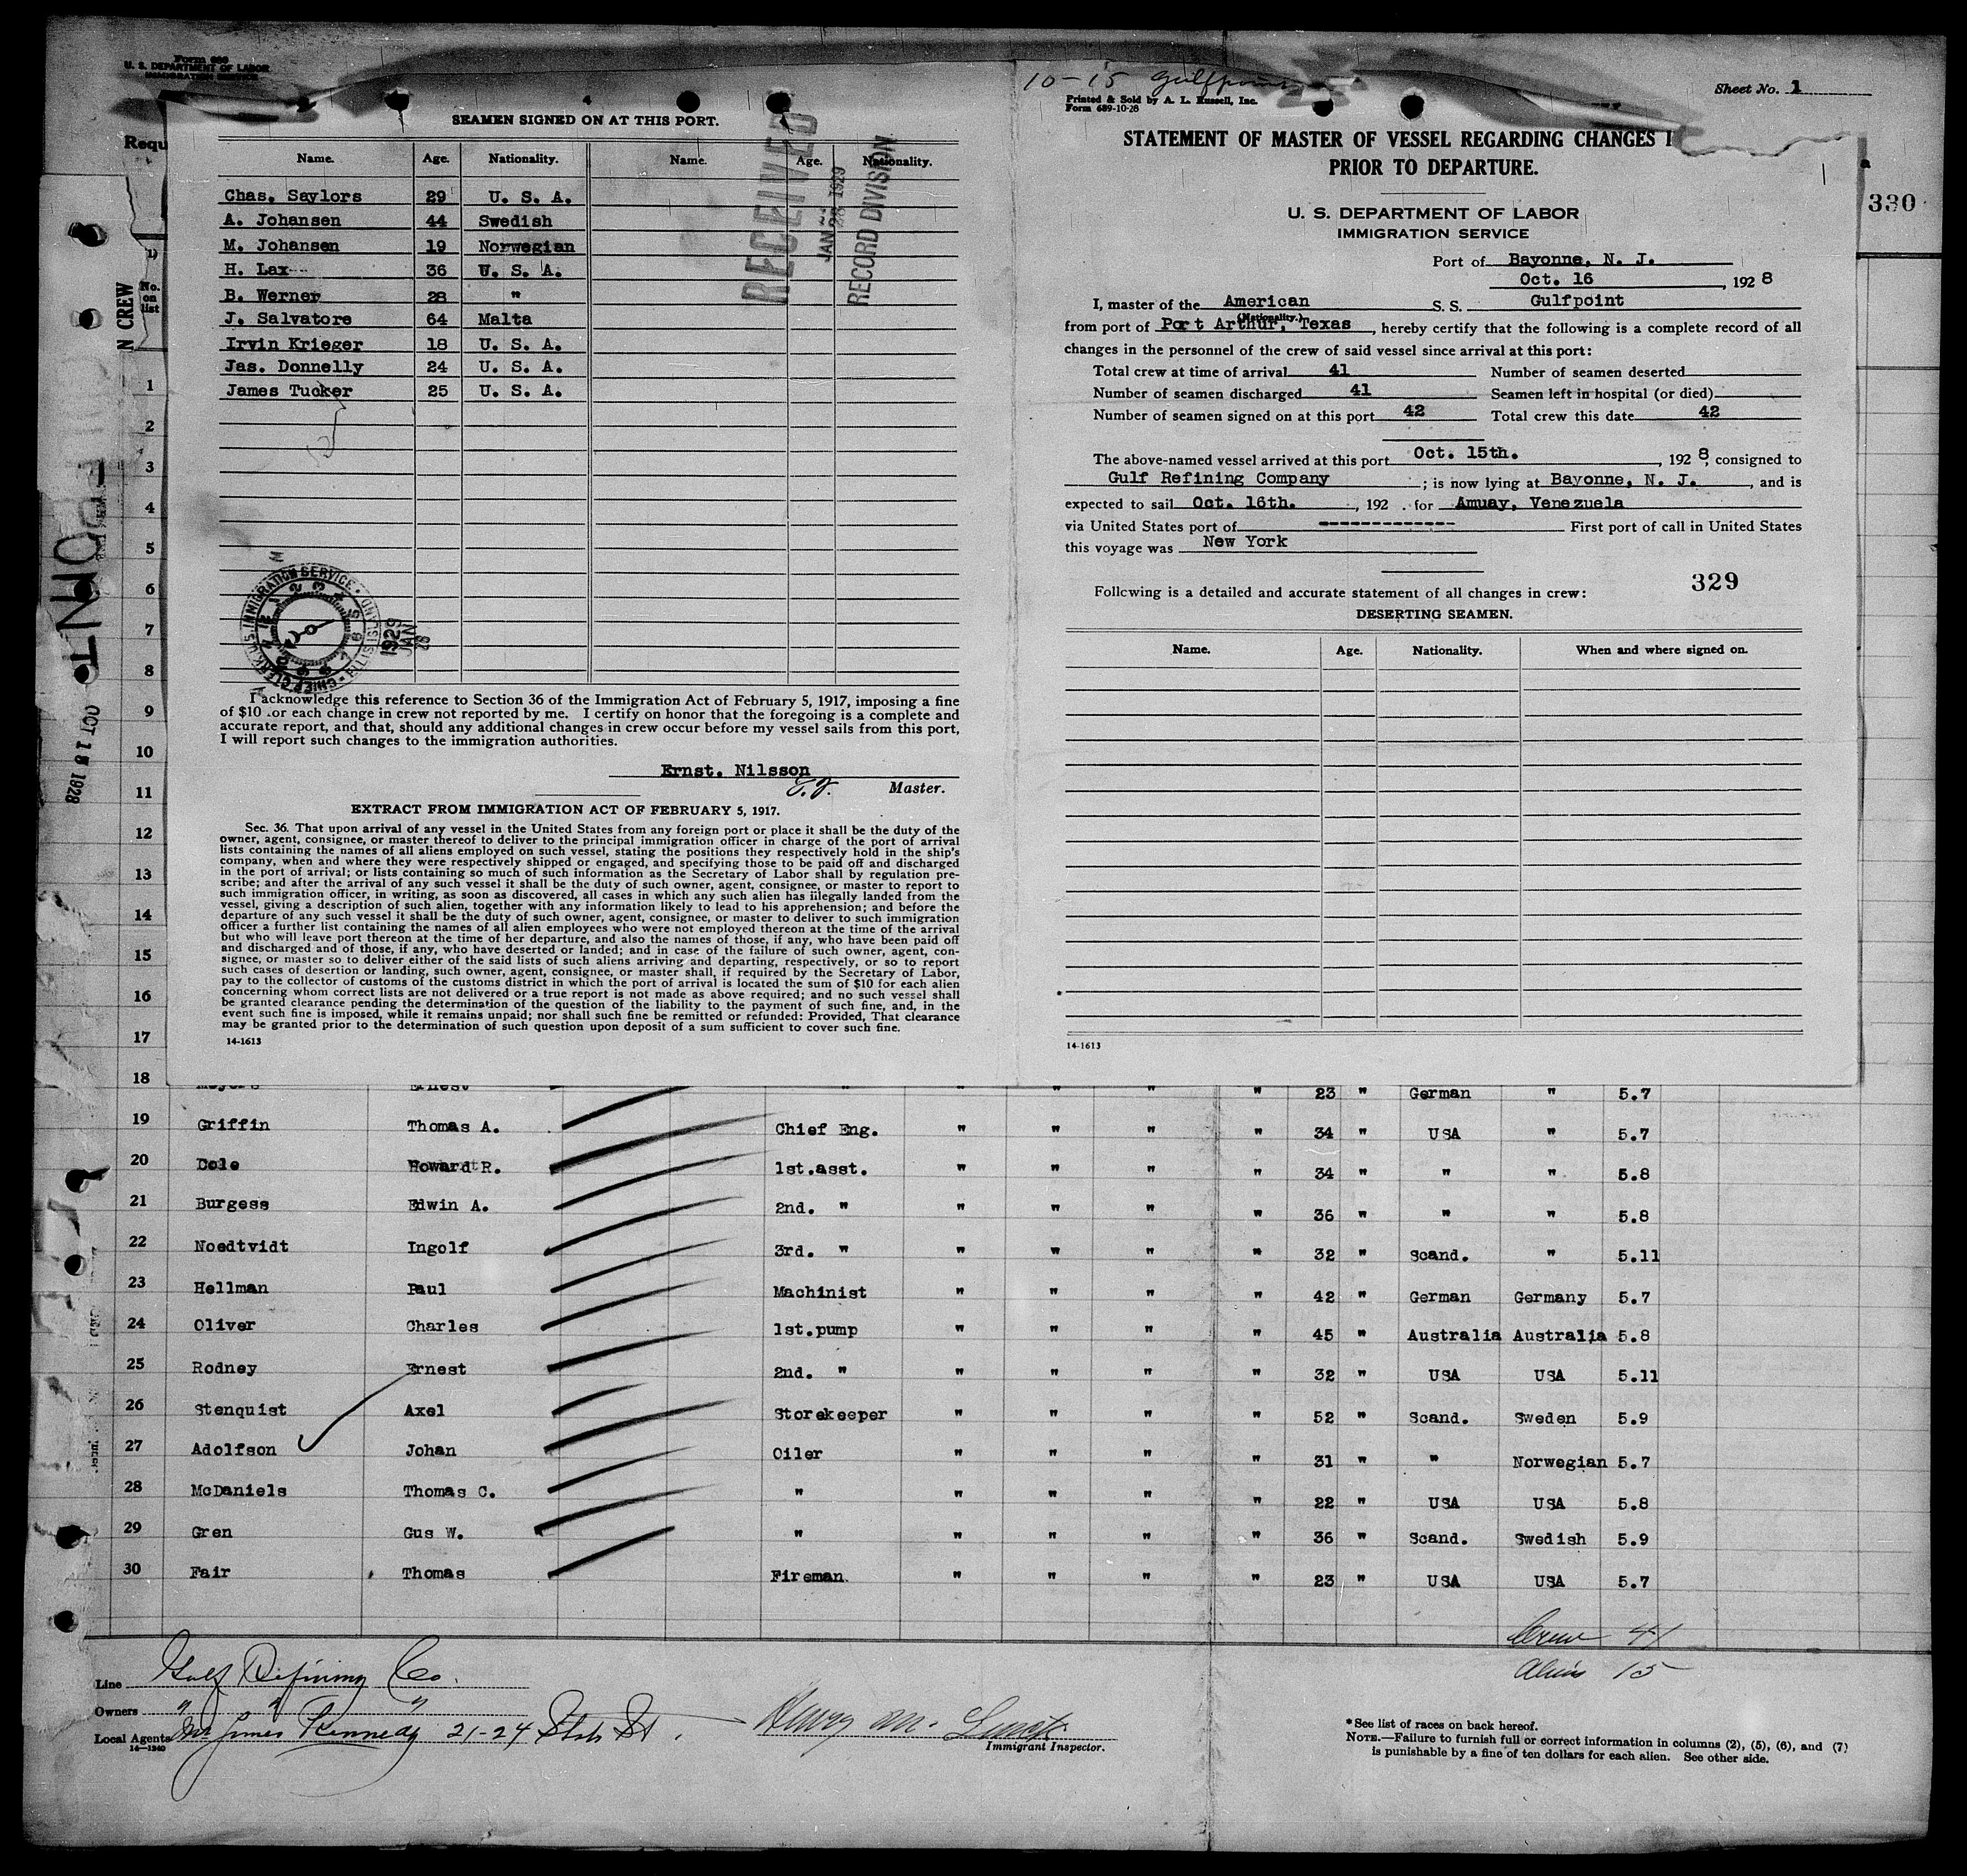 Form 689
U. S. DEPARTMENT OF LABOR
IMMIGRATION SERVICE
Requ
N CREW
No. on list
4
SEAMEN SIGNED ON AT THIS PORT.
Name. Age. Nationality. Name. Age. Nationality.
Chas. Saylors 29 U. S. A.
A. Johansen 44 Swedish
M. Johansen 19 Norwegian
H. Lax 36 U. S. A.
B. Werner 28 "
J. Salvatore 64 Malta
Irvin Krieger 18 U. S. A.
Jas. Donnelly 24 U. S. A.
James Tucker 25 U. S. A.
RECEIVED
JAN 28 1929
RECORD DIVISION
CHIEF CLERK U. S. IMMIGRATION SERVICE ELLIS ISLAND
1929 JAN 28
I acknowledge this reference to Section 36 of the Immigration Act of February 5, 1917, imposing a fine
of $10 .or each change in crew not reported by me. I certify on honor that the foregoing is a complete and
accurate report, and that, should any additional changes in crew occur before my vessel sails from this port,
I will report such changes to the immigration authorities.
Ernst. Nilsson
Master.
EXTRACT FROM IMMIGRATION ACT OF FEBRUARY 5, 1917.
Sec. 36. That upon arrival of any vessel in the United States from any foreign port or place it shall be the duty of the
owner, agent, consignee, or master thereof to deliver to the principal immigration officer in charge of the port of arrival
lists containing the names of all aliens employed on such vessel, stating the positions they respectively hold in the ship's
company, when and where they were respectively shipped or engaged, and specifying those to be paid off and discharged
in the port of arrival; or lists containing so much of such information as the Secretary of Labor shall by regulation pre-
scribe; and after the arrival of any such vessel it shall be the duty of such owner, agent, consignee, or master to report to
such immigration officer, in writing, as soon as discovered, all cases in which any such alien has illegally landed from the
vessel, giving a description of such alien, together with any information likely to lead to his apprehension; and before the
departure of any such vessel it shall be the duty of such owner, agent, consignee, or master to deliver to such immigration
officer a further list containing the names of all alien employees who were not employed thereon at the time of the arrival
but who will leave port thereon at the time of her departure, and also the names of those, if any, who have been paid off
and discharged and of those, if any, who have deserted or landed; and in case of the failure of such owner, agent, con-
signee, or master so to deliver either of the said lists of such aliens arriving and departing, respectively, or so to report
such cases of desertion or landing, such owner, agent, consignee, or master shall, if required by the Secretary of Labor,
pay to the collector of customs of the customs district in which the port of arrival is located the sum of $10 for each alien
concerning whom correct lists are not delivered or a true report is not made as above required; and no such vessel shall
be granted clearance pending the determination of the question of the liability to the payment of such fine, and, in the
event such fine is imposed, while it remains unpaid; nor shall such fine be remitted or refunded: Provided, That clearance
may be granted prior to the determination of such question upon deposit of a sum sufficient to cover such fine.
14-1613
10-15 Gulfpoint
Printed & Sold by A. L. Russell, Inc.
Form 689-10-28
Sheet No. 1
STATEMENT OF MASTER OF VESSEL REGARDING CHANGES I
PRIOR TO DEPARTURE.
U. S. DEPARTMENT OF LABOR
IMMIGRATION SERVICE
330
Port of Bayonne, N. J.
Oct. 16, 1928
I, master of the American S. S. Gulfpoint
(Nationality.)
from port of Port Arthur, Texas, hereby certify that the following is a complete record of all
changes in the personnel of the crew of said vessel since arrival at this port:
Total crew at time of arrival 41 Number of seamen deserted
Number of seamen discharged 41 Seamen left in hospital (or died)
Number of seamen signed on at this port 42 Total crew this date 42
The above-named vessel arrived at this port Oct. 15th., 1928, consigned to
Gulf Refining Company; is now lying at Bayonne, N. J., and is
expected to sail Oct. 16th., 192 . for Amuay, Venezuela
via United States port of -------------- First port of call in United States
this voyage was New York
329
Following is a detailed and accurate statement of all changes in crew:
DESERTING SEAMEN.
Name. Age. Nationality. When and where signed on.
14-1613
OCT 18 1928
1
2
3
4
5
6
7
8
9
10
11
12
13
14
15
16
17
18 Meyers Ernest " " " " " 23 " German " 5.7
19 Griffin Thomas A. Chief Eng. " " " " 34 " USA " 5.7
20 Cole Howard R. 1st.asst. " " " " 34 " " " 5.8
21 Burgess Edwin A. 2nd. " " " " " 36 " " " 5.8
22 Noedtvidt Ingolf 3rd. " " " " " 32 " Scand. " 5.11
23 Hellman Paul Machinist " " " " 42 " German Germany 5.7
24 Oliver Charles 1st.pump " " " " 45 " Australia Australia 5.8
25 Rodney Ernest 2nd. " " " " " 32 " USA USA 5.11
26 Stenquist Axel Storekeeper " " " " 52 " Scand. Sweden 5.9
27 Adolfson Johan Oiler " " " " 31 " " Norwegian 5.7
28 McDaniels Thomas C. " " " " " 22 " USA USA 5.8
29 Gren Gus W. " " " " " 36 " Scand. Swedish 5.9
30 Fair Thomas Fireman. " " " " 23 " USA USA 5.7
Crew 41
Aliens 15
Line Gulf Refining Co.
Owners " " "
Local Agents Mr James Kennedy 21-24 State St.
14-1240
Henry M.
Immigrant Inspector.
* See list of races on back hereof.
NOTE.—Failure to furnish full or correct information in columns (2), (5), (6), and (7)
is punishable by a fine of ten dollars for each alien. See other side.